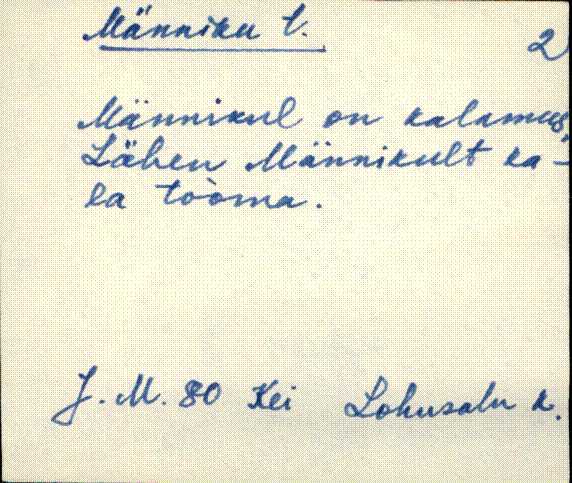 Männiku t. 2
Männikul on kalamees,
Lähen Männikult ka-
la tooma.
J. M. 80 Kei Lohusalu k.